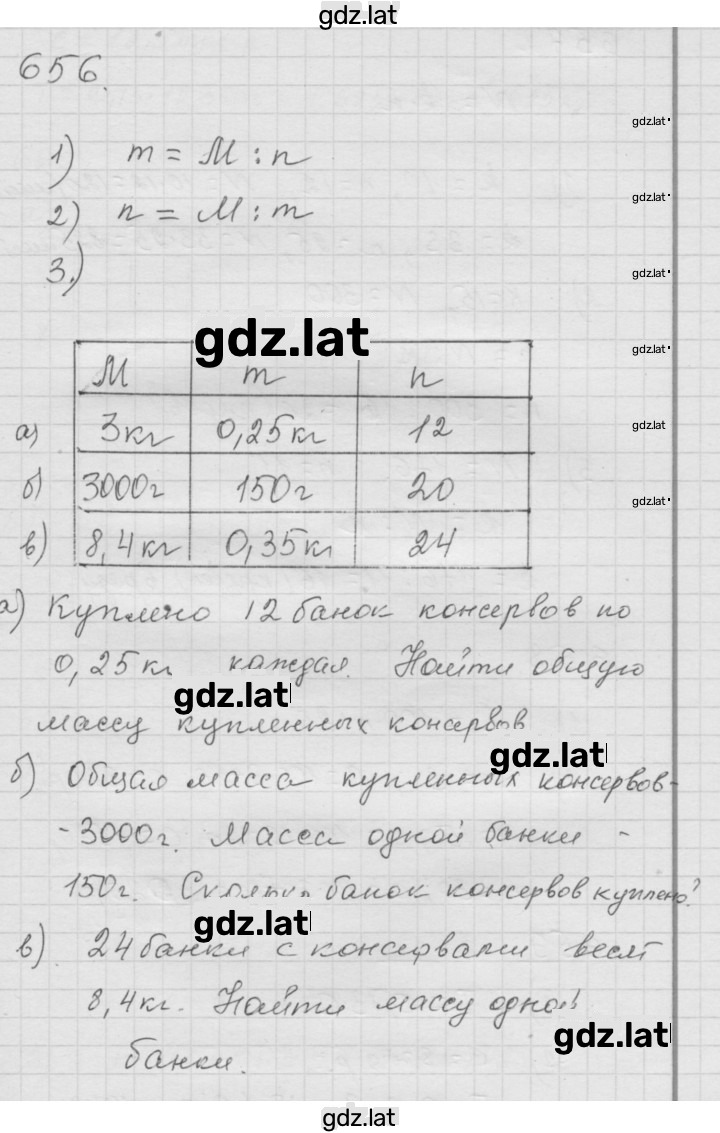 gdz.lat
656.
gdz.lat
1) m = M : n
gdz.lat
2) n = M : m
3.)
gdz.lat
gdz.lat
gdz.lat
M m n
а) 3кг 0,25кг 12
gdz.lat
б) 3000г 150г 20
gdz.lat
в) 8,4кг 0,35кг 24
а) Куплено 12 банок консервов по
0,25кг каждая. Найти общую
gdz.lat
массу купленных консервов
gdz.lat
б) Общая масса купленных консервов-
-3000г. Масса одной банки -
150г. Сколько банок консервов куплено?
gdz.lat
в) 24 банки с консервами весят
8,4кг. Найти массу одной
gdz.lat
банки.
gdz.lat